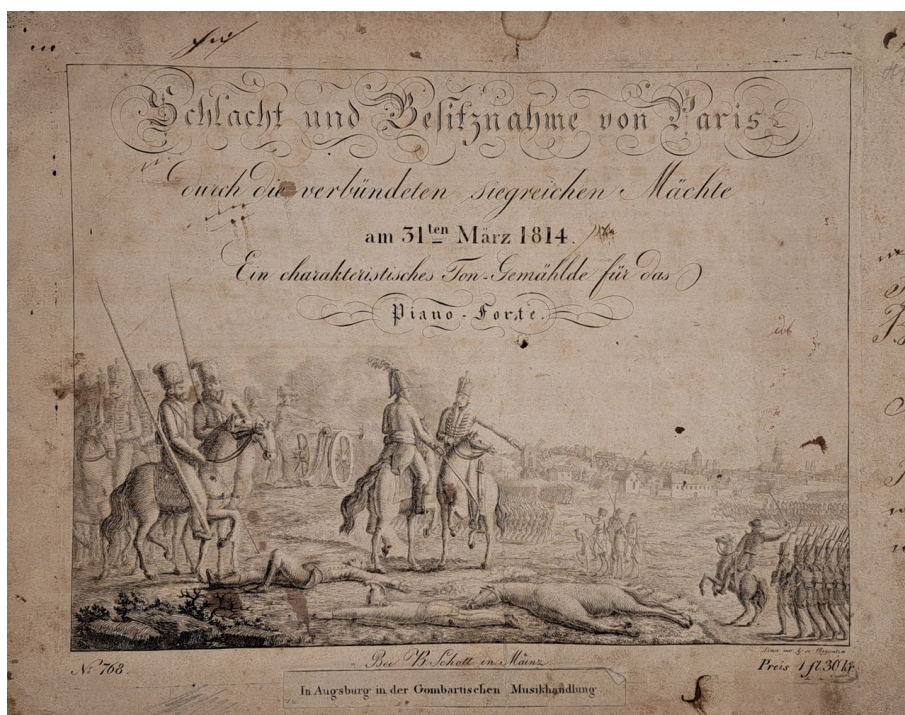 Schlacht und Besitznahme von Paris
durch die verbündeten siegreichen Mächte
am 31ten März 1814.
Ein charakteristisches Ton-Gemählde für das
Piano-Forte.
No. 768
Bei B. Schott in Mainz
Preis 1 fl. 30 kr.
In Augsburg in der Gombartischen Musikhandlung